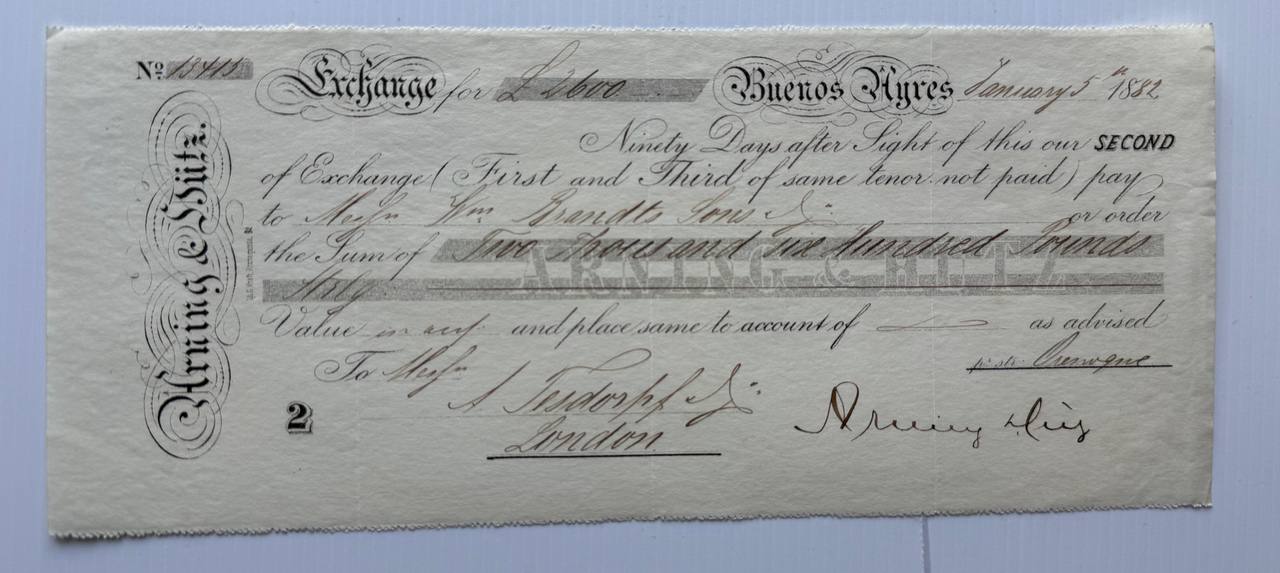 No 13413 Exchange for £ 2600 Buenos Ayres January 5th 1882
Ninety Days after Sight of this our SECOND
of Exchange (First and Third of same tenor not paid) pay
to Messrs Wm Brandts Sons & Co. or order
the Sum of Two Thousand Six Hundred Pounds
Stg
ARNING & HÜTZ
Value in acct. and place same to account of as advised
pr str.
To Messrs
A Tesdorpf & Co.
London.
2
Arning & Hütz.